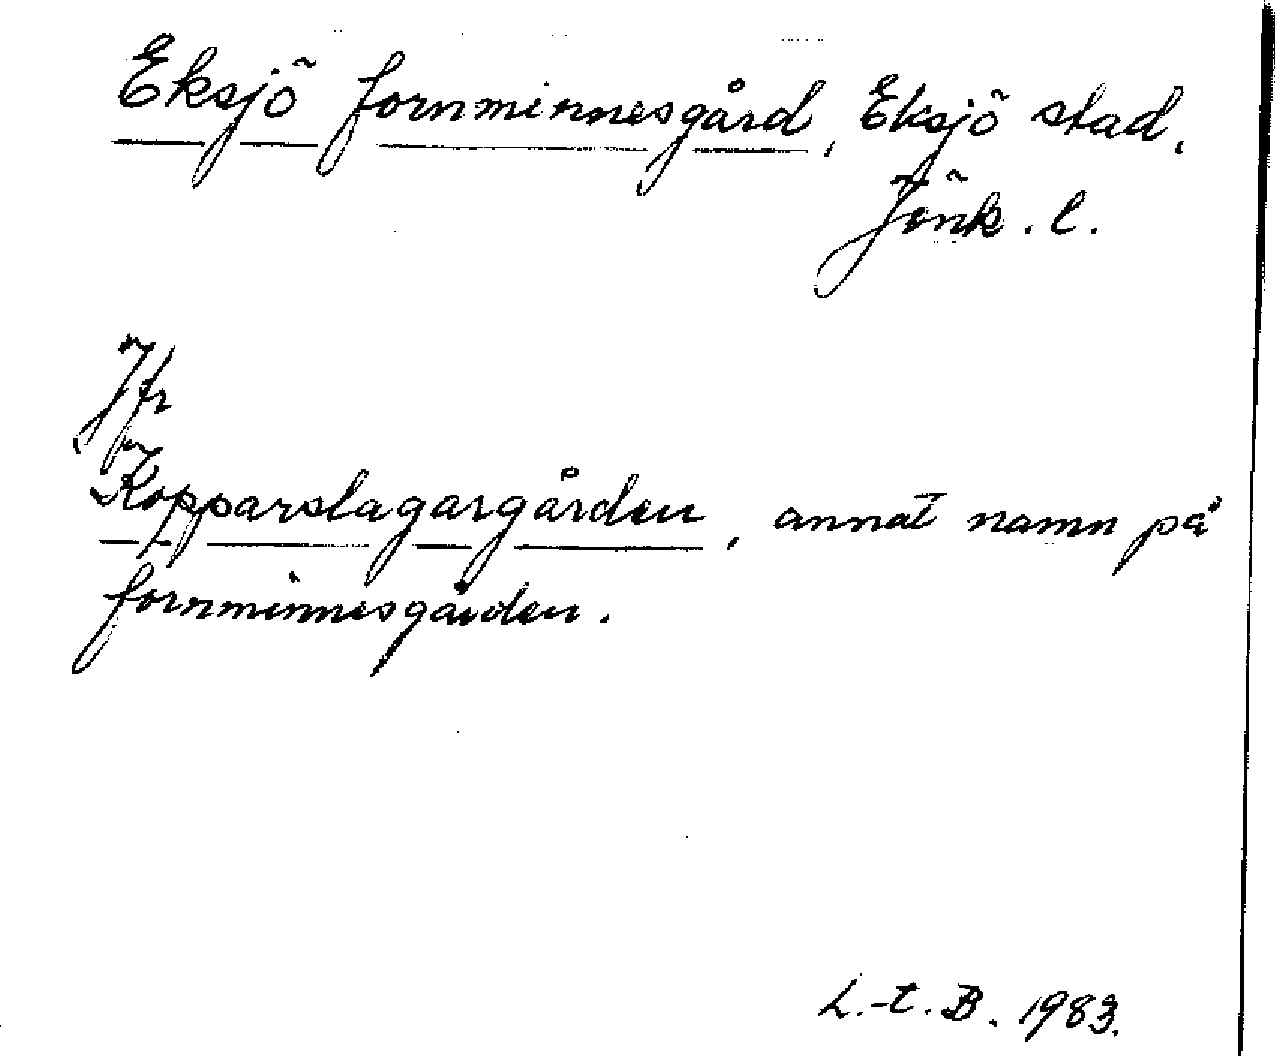 Eksjö fornminnesgård, Eksjö stad,
Jönk. l.
Jfr
Kopparslagargården, annat namn på
fornminnesgården.
L.-E. B. 1983.